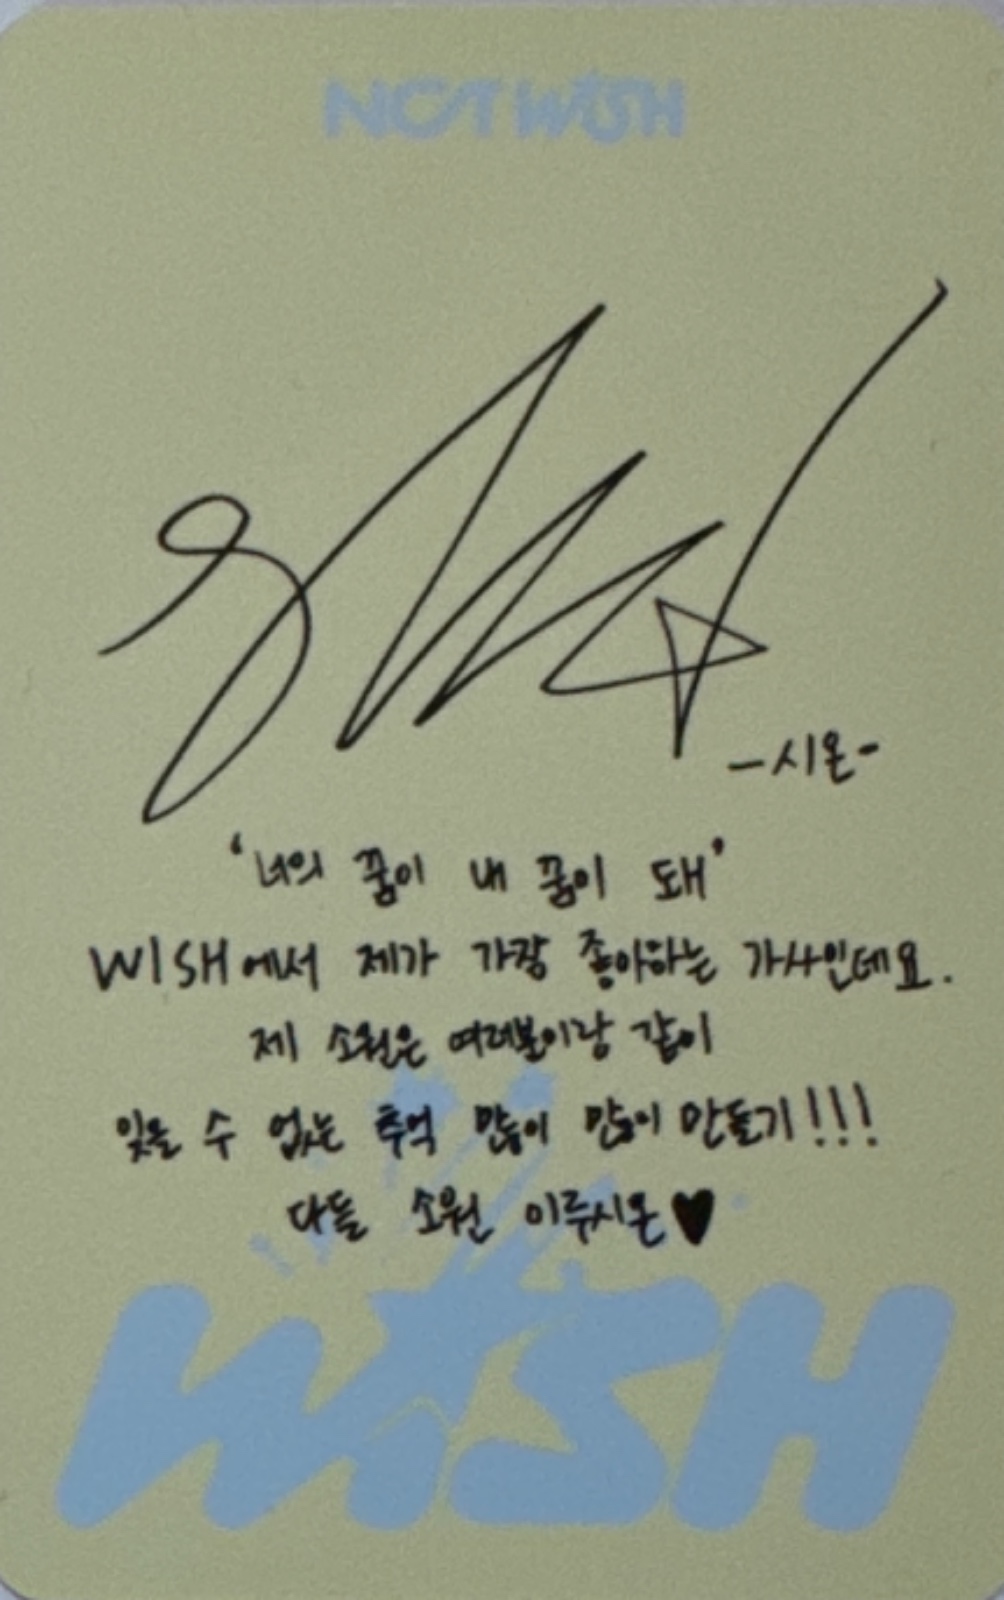 NCT WISH
-시온-
‘너의 꿈이 내 꿈이 돼’
WISH에서 제가 가장 좋아하는 가사인데요.
제 소원은 여러분이랑 같이
잊을 수 없는 추억 많이 많이 만들기!!!
다들 소원 이루시온♥
WISH